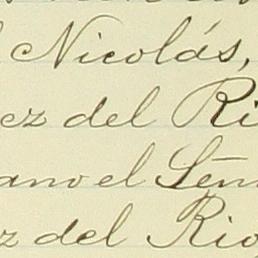 Nicolás,
ez del Ri
ano el Sen
z del Rio,